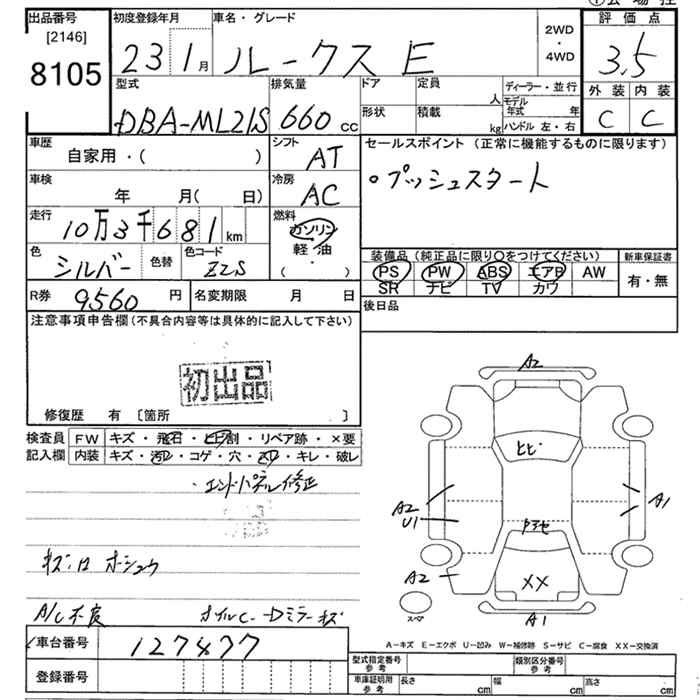 出品番号 [2146] 8105
初度登録年月 23 1月
車名・グレード ルークス E
2WD・4WD
評価点 3.5
外装 C 内装 C
型式 DBA-ML21S
排気量 660 cc
ドア 形状
定員 人
積載 kg
ディーラー・並行
モデル年式 年
ハンドル 左・右
車歴 自家用・( )
シフト AT
車検 年 月( 日)
冷房 AC
走行 10万3千681km
燃料 ガソリン 軽・油 ( ・ )
色 シルバー 色替 色コード ZZS
R券 9560円 名変期限 月 日
セールスポイント (正常に機能するものに限ります)
○プッシュスタート
装備品 (純正品に限り○をつけてください)
PS PW ABS エアB AW
SR ナビ TV カワ
新車保証書 有・無
後日品
注意事項申告欄 (不具合内容等は具体的に記入して下さい)
初出品
修復歴 有 〔箇所 〕
検査員記入欄
FW キズ・飛石・ヒビ割・リペア跡・×要
内装 キズ・汚レ・コゲ・穴・スレ・キレ・破レ
・エンドパネル修正
A/C不良
車台番号 127477
登録番号
A2
ヒビ
A2
U1
A1
A2
XX
スペア
A1
A-キズ E-エクボ U-凹み W-補修跡 S-サビ C-腐食 XX-交換済
型式指定番号 参考
類別区分番号 参考
車庫証明用 参考 長さ cm 幅 cm 高さ cm